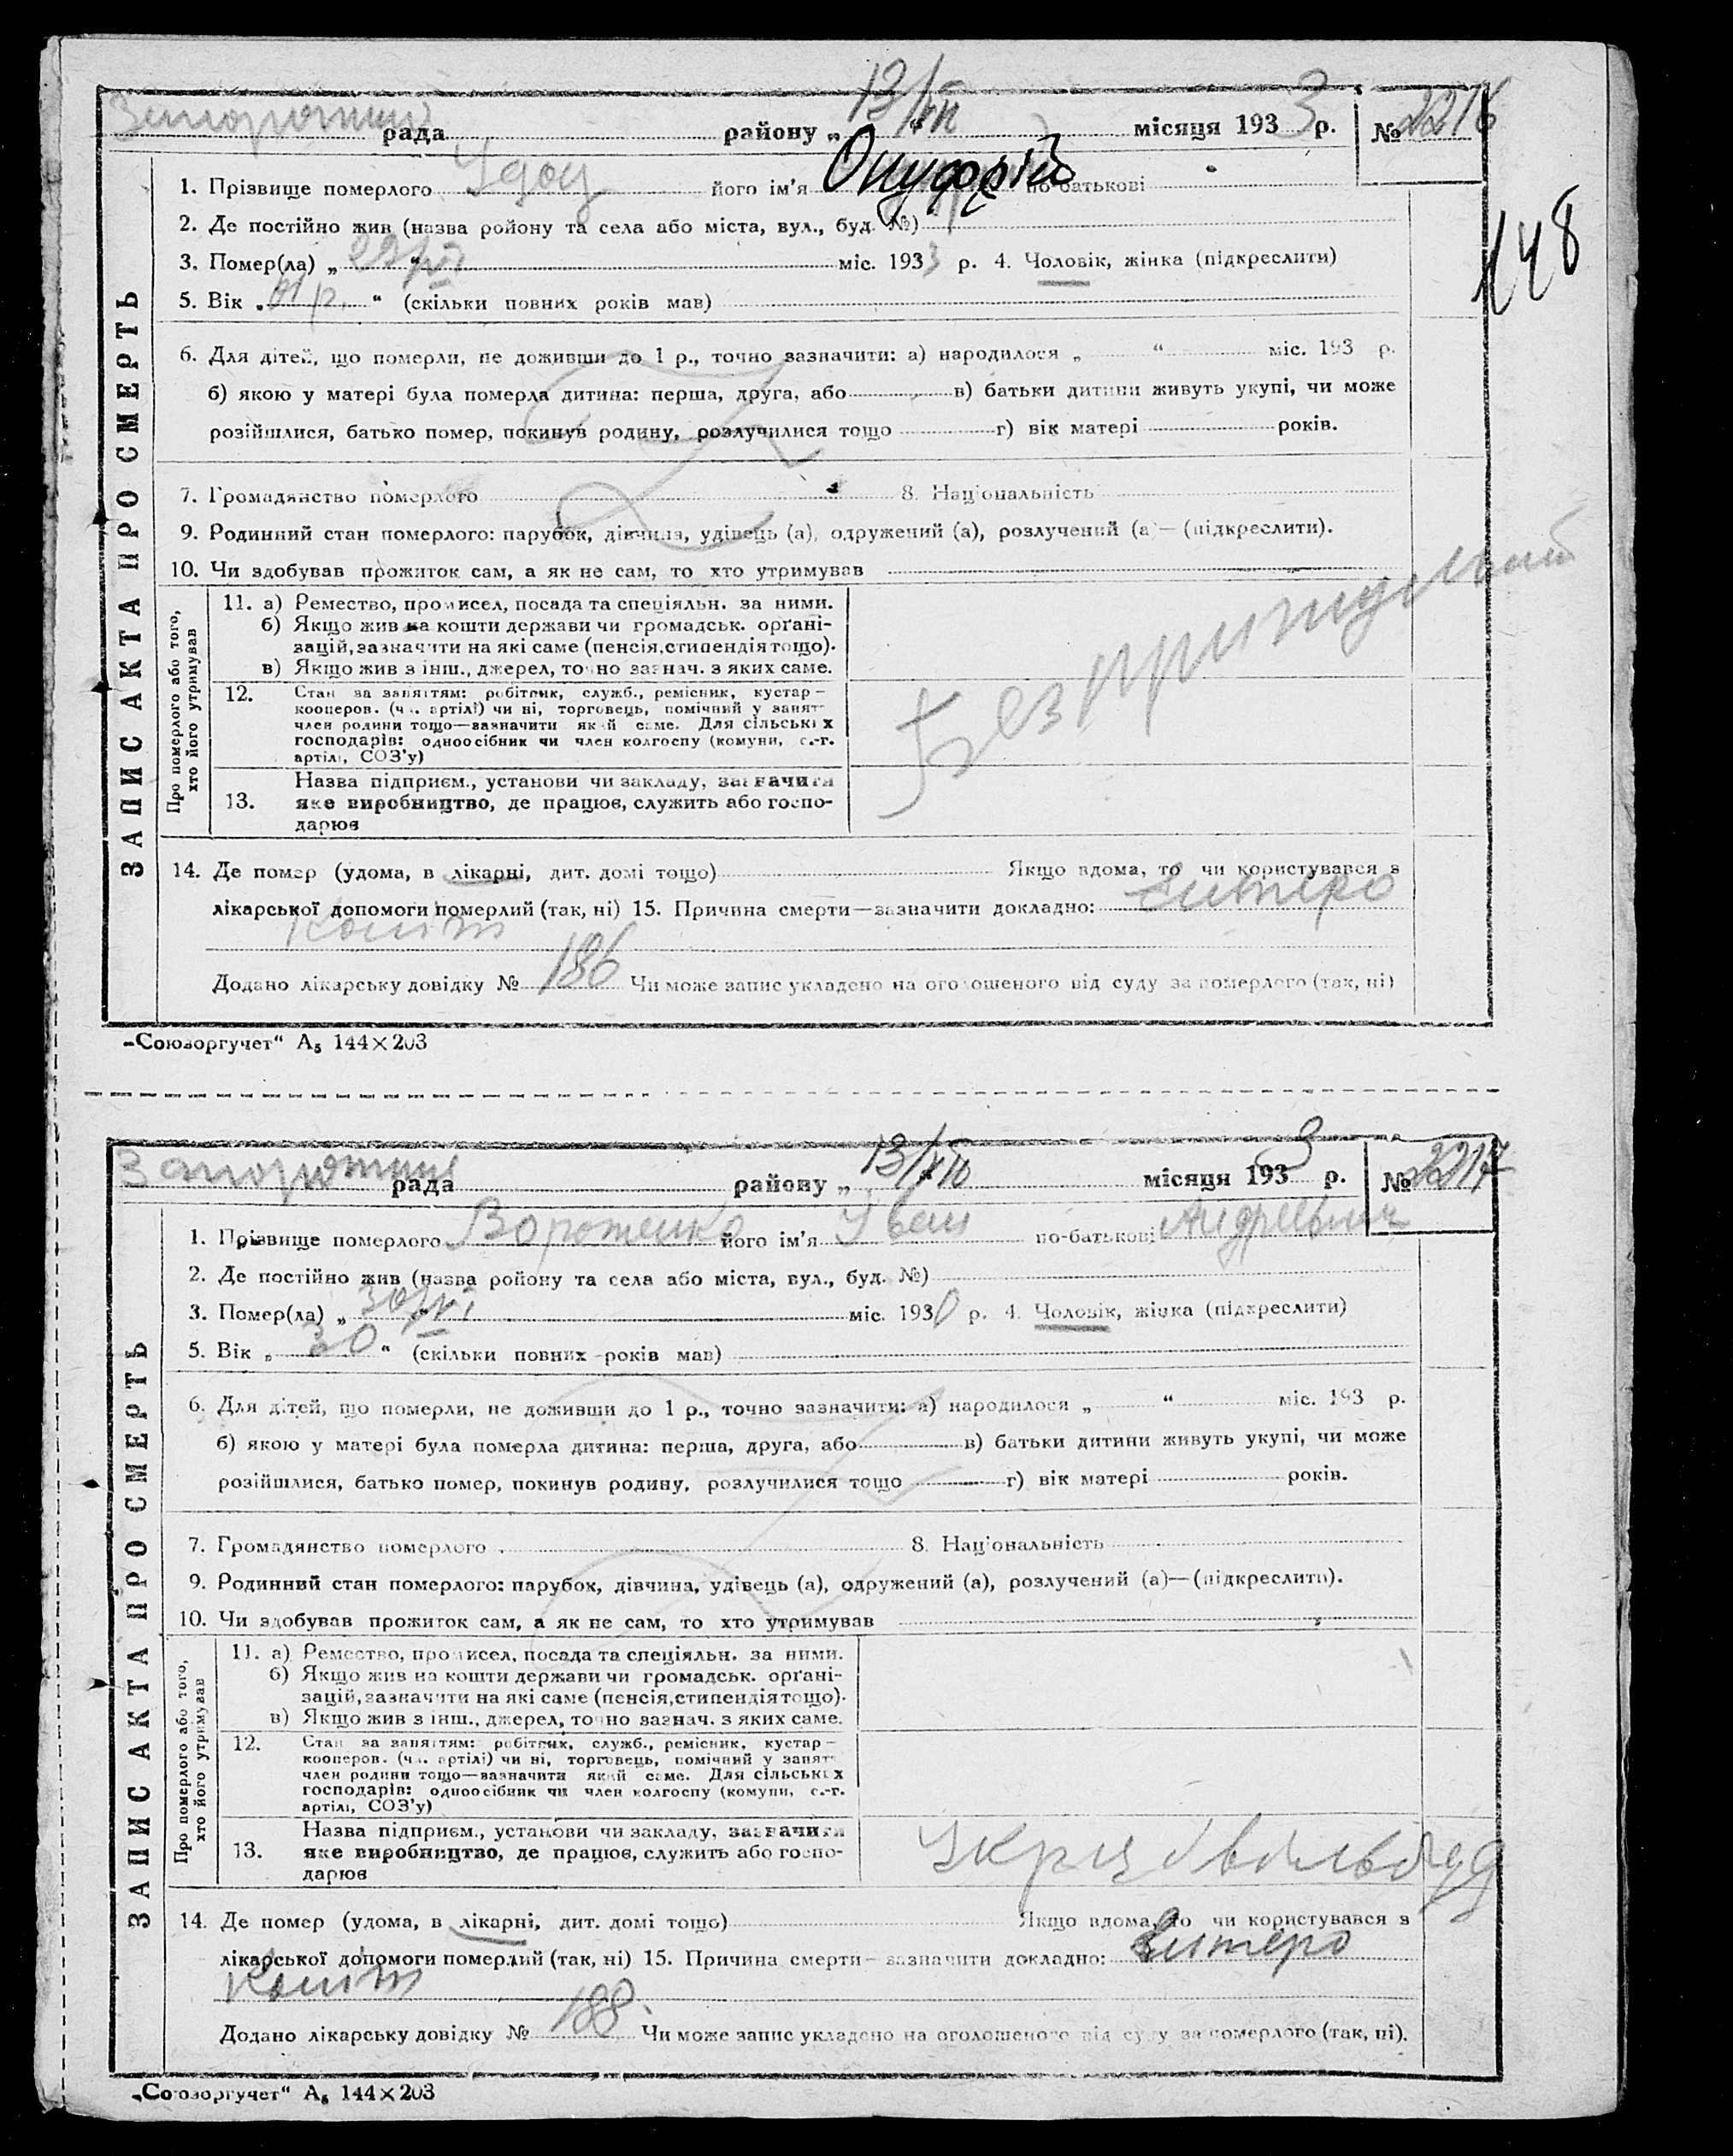 Запорожжя рада району „ 13/VII “ місяця 1933 р. № 2216
148
1. Прізвище померлого Удоц його ім'я Онуфрій по-батькові
2. Де постійно жив (назва ройону та села або міста, вул., буд. №)
3. Помер(ла) „ 29/VI “ міс. 1933 р. 4. Чоловік, жінка (підкреслити)
5. Вік „ р. “ (скільки повних років мав)
6. Для дітей, що померли, не доживши до 1 р., точно зазначити: а) народилося „ “ міс. 193 р.
б) якою у матері була померла дитина: перша, друга, або в) батьки дитини живуть укупі, чи може
розійшлися, батько помер, покинув родину, розлучилися тощо г) вік матері років.
7. Громадянство померлого 8. Національність
9. Родинний стан померлого: парубок, дівчина, удівець (а), одружений (а), розлучений (а)— (підкреслити).
10. Чи здобував прожиток сам, а як не сам, то хто утримував
ЗАПИС АКТА ПРО СМЕРТЬ
Про померлого або того, хто його утримував
11. а) Ремество, промисел, посада та спеціяльн. за ними.
б) Якщо жив на кошти держави чи громадськ. орґані-
зацій, зазначити на які саме (пенсія, стипендія тощо).
в) Якщо жив з інш., джерел, точно зазнач. з яких саме.
Безпритульний
12. Стан за заняттям: робітник, служб., ремісник, кустар—
кооперов. (чл. артілі) чи ні, торговець, помічний у занят
член родини тощо—зазначити який саме. Для сільських
господарів: одноосібник чи член колгоспу (комуни, с.-г.
артілі, СОЗ'у)
Назва підприєм., установи чи закладу, зазначити
13. яке виробництво, де працює, служить або госпо-
дарює
14. Де помер (удома, в лікарні, дит. домі тощо) Якщо вдома, то чи користувався з
лікарської допомоги померлий (так, ні) 15. Причина смерти—зазначити докладно: Ентеро
коліт
Додано лікарську довідку № 186 Чи може запис укладено на оголошеного від суду за померлого (так, ні)
„Союзоргучет“ А₅ 144×203
Запорожжя рада району „ 13/VII “ місяця 1933 р. № 2217
1. Прізвище померлого Вороженко його ім'я Іван по-батькові Андреевич
2. Де постійно жив (назва ройону та села або міста, вул., буд. №)
3. Помер(ла) „ 30/VI “ міс. 1930 р. 4. Чоловік, жінка (підкреслити)
5. Вік „ 30 “ (скільки повних років мав)
6. Для дітей, що померли, не доживши до 1 р., точно зазначити: а) народилося „ “ міс. 193 р.
б) якою у матері була померла дитина: перша, друга, або в) батьки дитини живуть укупі, чи може
розійшлися, батько помер, покинув родину, розлучилися тощо г) вік матері років.
7. Громадянство померлого 8. Національність
9. Родинний стан померлого: парубок, дівчина, удівець (а), одружений (а), розлучений (а)—(підкреслити).
10. Чи здобував прожиток сам, а як не сам, то хто утримував
ЗАПИС АКТА ПРО СМЕРТЬ
Про померлого або того, хто його утримував
11. а) Ремество, промисел, посада та спеціяльн. за ними.
б) Якщо жив на кошти держави чи громадськ. орґані-
зацій, зазначити на які саме (пенсія, стипендія тощо).
в) Якщо жив з інш., джерел, точно зазнач. з яких саме.
12. Стан за заняттям: робітник, служб., ремісник, кустар—
кооперов. (чл. артілі) чи ні, торговець, помічний у занят
член родини тощо—зазначити який саме. Для сільських
господарів: одноосібник чи член колгоспу (комуни, с.-г.
артілі, СОЗ'у)
Назва підприєм., установи чи закладу, зазначити
13. яке виробництво, де працює, служить або госпо-
дарює
14. Де помер (удома, в лікарні, дит. домі тощо) Якщо вдома, то чи користувався з
лікарської допомоги померлий (так, ні) 15. Причина смерти—зазначити докладно: Ентеро
коліт
Додано лікарську довідку № 188 Чи може запис укладено на оголошеного від суду за померлого (так, ні).
„Союзоргучет“ А₅ 144×203